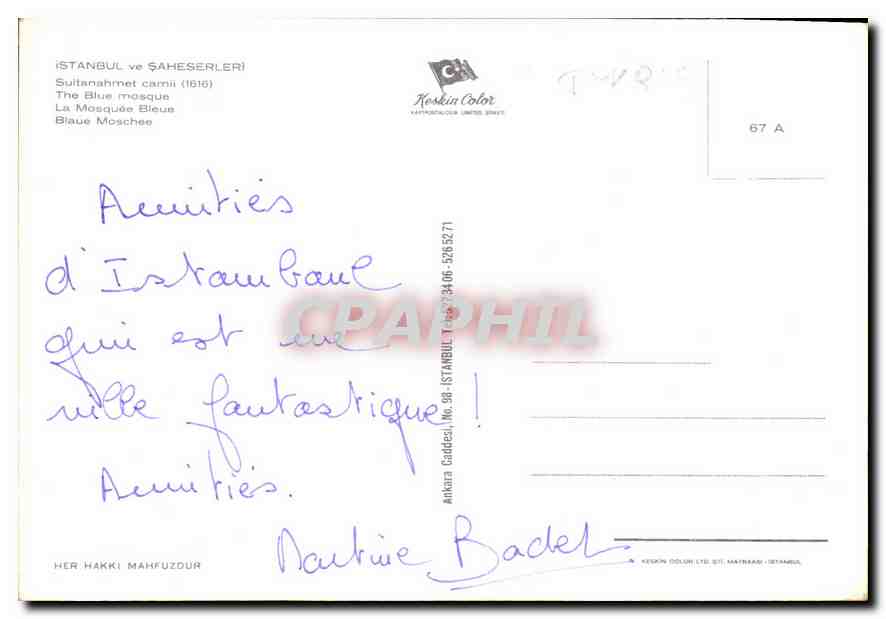 İSTANBUL ve ŞAHESERLERİ
Sultanahmet camii (1616)
The Blue mosque
La Mosquée Bleue
Blaue Moschee
Keskin Color
KARTPOSTALCILIK LIMITED ŞİRKETİ
67 A
Amitiés
d'Istamboul
qui est une
ville fantastique !
Amitiés.
Martine Badel
CPAPHIL
Ankara Caddesi, No. 98 - İSTANBUL Tel: 5273406 - 5265271
HER HAKKI MAHFUZDUR
KESKIN COLOR LTD. ŞTİ. MATBAASI - İSTANBUL